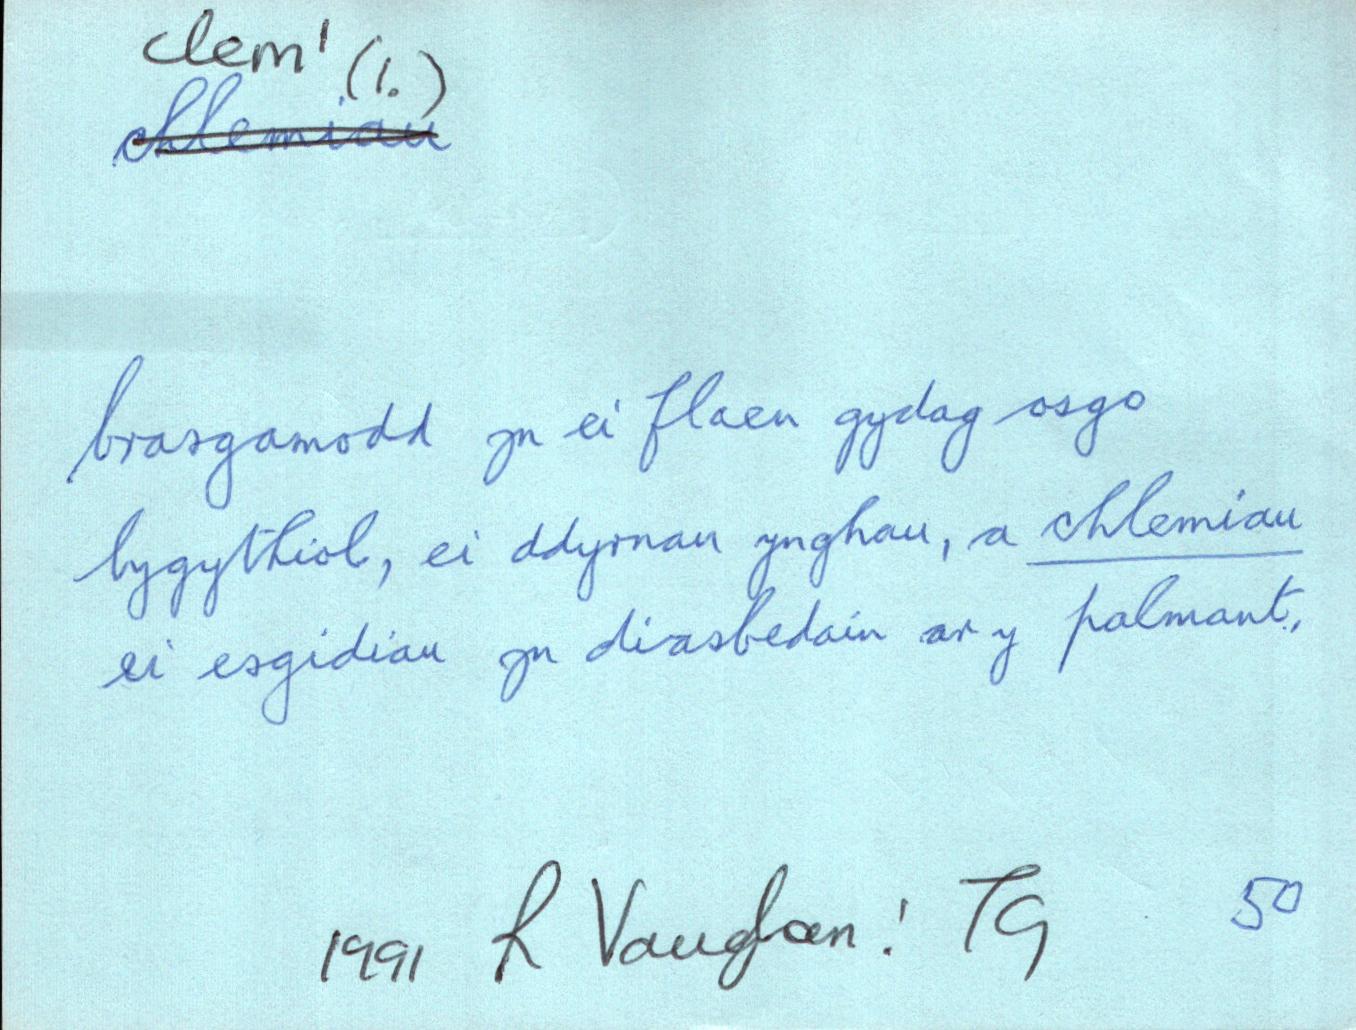 clem¹ (1.)
chlemiau
brasgamodd yn ei flaen gydag osgo
bygythiol, ei ddyrnau ynghau, a chlemiau
ei esgidiau yn diasbedain ar y palmant.
1991 R Vaughan: TG 50